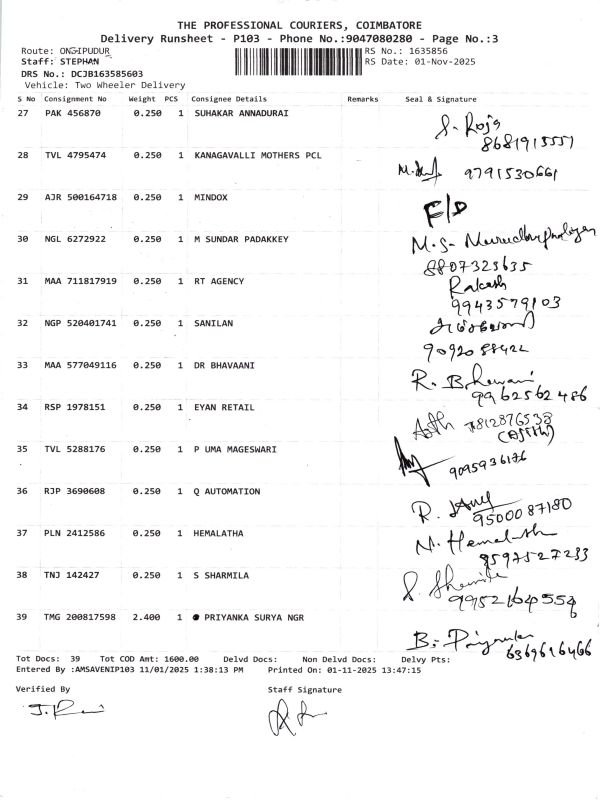 THE PROFESSIONAL COURIERS, COIMBATORE
Delivery Runsheet - P103 - Phone No.:9047080280 - Page No.:3
Route: ONGIPUDUR
RS No.: 1635856
Staff: STEPHAN
RS Date: 01-Nov-2025
DRS No.: DCJB163585603
Vehicle: Two Wheeler Delivery
S No Consignment No Weight PCS Consignee Details Remarks Seal & Signature
27 PAK 456870 0.250 1 SUHAKAR ANNADURAI
S. Roja
8681915551
28 TVL 4795474 0.250 1 KANAGAVALLI MOTHERS PCL
9791530661
29 AJR 500164718 0.250 1 MINDOX
F/D
30 NGL 6272922 0.250 1 M SUNDAR PADAKKEY
M.S-
8807323635
31 MAA 711817919 0.250 1 RT AGENCY
Rakash
9943579103
32 NGP 520401741 0.250 1 SANILAN
33 MAA 577049116 0.250 1 DR BHAVAANI
R. Bhavani
9962562486
34 RSP 1978151 0.250 1 EYAN RETAIL
7812876538
35 TVL 5288176 0.250 1 P UMA MAGESWARI
9095936176
36 RJP 3690608 0.250 1 Q AUTOMATION
R.
9500087180
37 PLN 2412586 0.250 1 HEMALATHA
N. Hemalatha
9597527233
38 TNJ 142427 0.250 1 S SHARMILA
S. Sharmila
9952164554
39 TMG 200817598 2.400 1 PRIYANKA SURYA NGR
B. Priyanka
6369616466
Tot Docs: 39 Tot COD Amt: 1600.00 Delvd Docs: Non Delvd Docs: Delvy Pts:
Entered By :AMSAVENIP103 11/01/2025 1:38:13 PM Printed On: 01-11-2025 13:47:15
Verified By Staff Signature